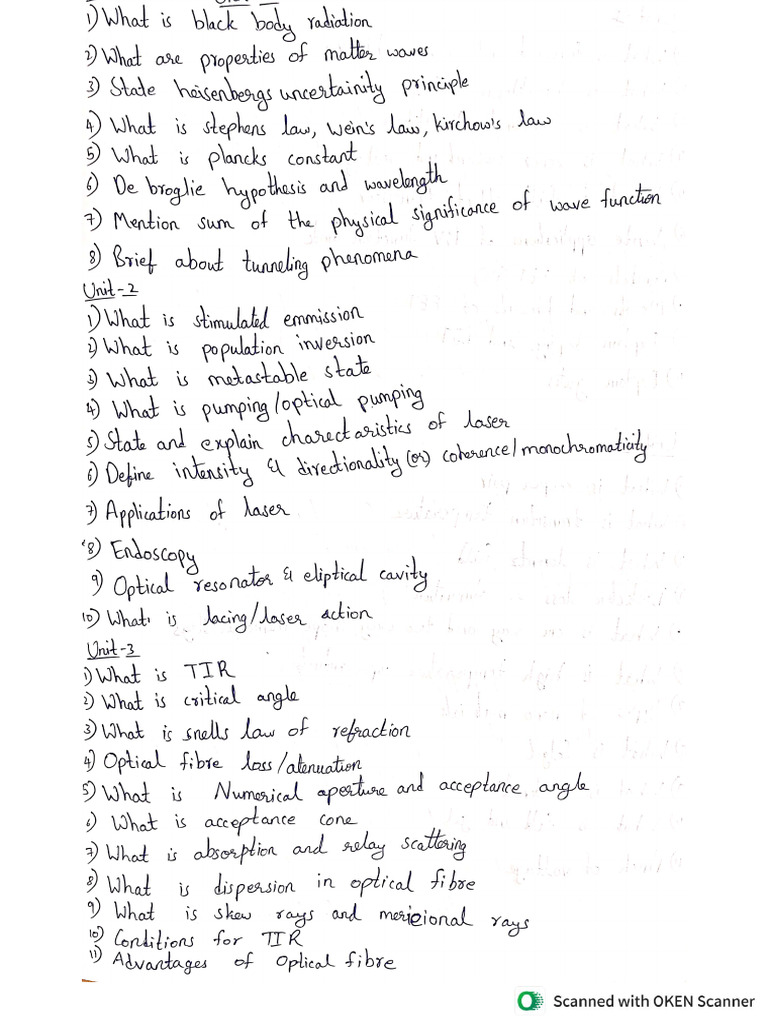 1) What is black body radiation
2) What are properties of matter waves
3) State heisenbergs uncertainity principle
4) What is stephens law, Wein's law, kirchow's law
5) What is plancks constant
6) De broglie hypothesis and wavelength
7) Mention sum of the physical significance of wave function
8) Brief about tunneling phenomena
Unit-2
1) What is stimulated emmission
2) What is population inversion
3) What is metastable state
4) What is pumping/optical pumping
5) State and explain charectaristics of laser
6) Define intensity & directionality (or) coherence/monochromaticity
7) Applications of laser
8) Endoscopy
9) Optical resonator & eliptical cavity
10) What is lacing/laser action
Unit-3
1) What is TIR
2) What is critical angle
3) What is snells law of refraction
4) Optical fibre loss/atenuation
5) What is Numerical aperture and acceptance, angle
6) What is acceptance cone
7) What is absorption and relay scattering
8) What is dispersion in optical fibre
9) What is skew rays and mericional rays
10) Conditions for TIR
11) Advantages of Optical fibre
Scanned with OKEN Scanner